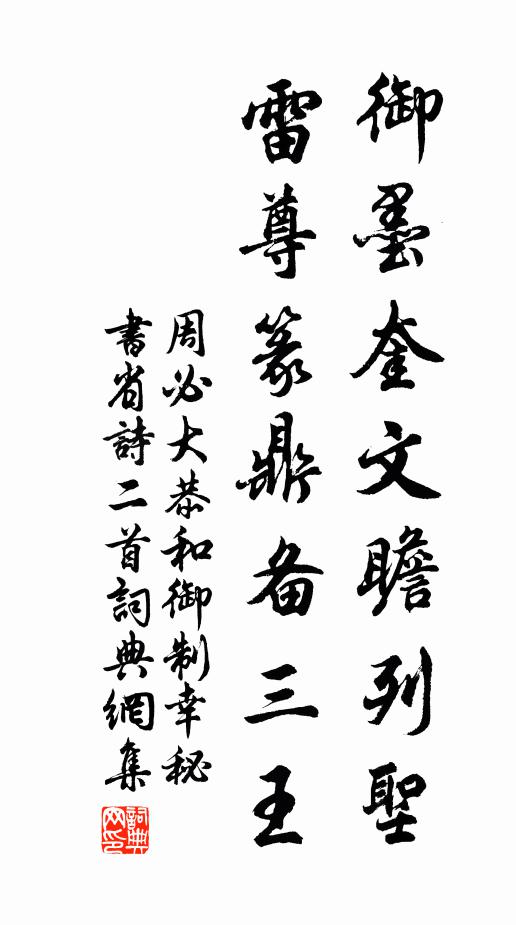 御墨奎文瞻列聖
雷尊篆鼎备三王
周必大恭和御制幸秘
書省詩二首詞典網集
詞典
网印